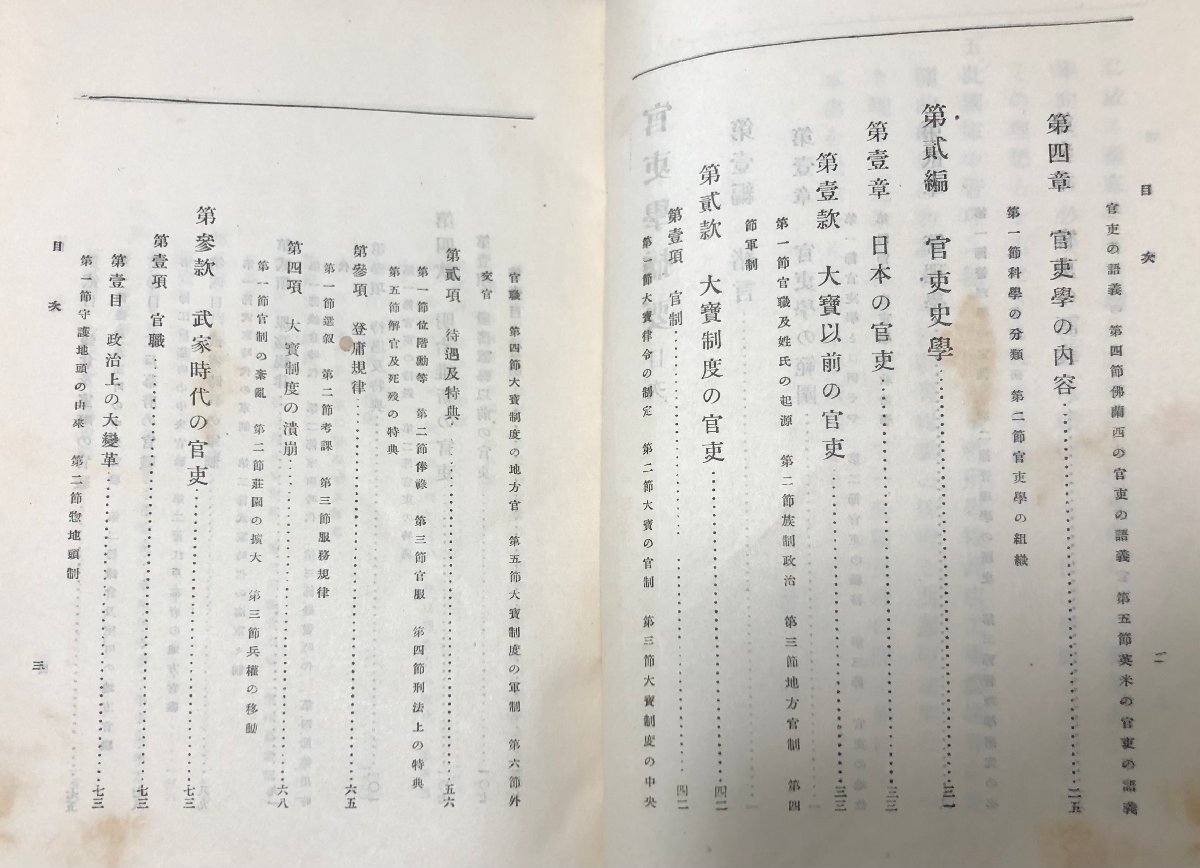 目次
二
官吏の語義 第四節佛蘭西の官吏の語義 第五節英米の官吏の語義
第四章 官吏學の內容……二五
第一節科學の分類 第二節官吏學の組織
第貳編 官吏史學……三一
第壹章 日本の官吏……三三
第壹款 大寶以前の官吏……三三
第一節官職及姓氏の起源 第二節族制政治 第三節地方官制 第四
節軍制
第貳款 大寶制度の官吏……四二
第壹項 官制……四二
第一節大寶律令の制定 第二節大寶の官制 第三節大寶制度の中央
官職 第四節大寶制度の地方官 第五節大寶制度の軍制 第六節外
交官
第貳項 待遇及特典……五六
第一節位階勳等 第二節俸祿 第三節官服 第四節刑法上の特典
第五節解官及死殘の特典
第參項 登庸規律……六五
第一節選叙 第二節考課 第三節服務規律
第四項 大寶制度の潰崩……六八
第一節官制の紊亂 第二節莊園の擴大 第三節兵權の移動
第參款 武家時代の官吏……七三
第壹項 官職……七三
第壹目 政治上の大變革……七三
第一節守護地頭の由來 第二節惣地頭制
目次
三